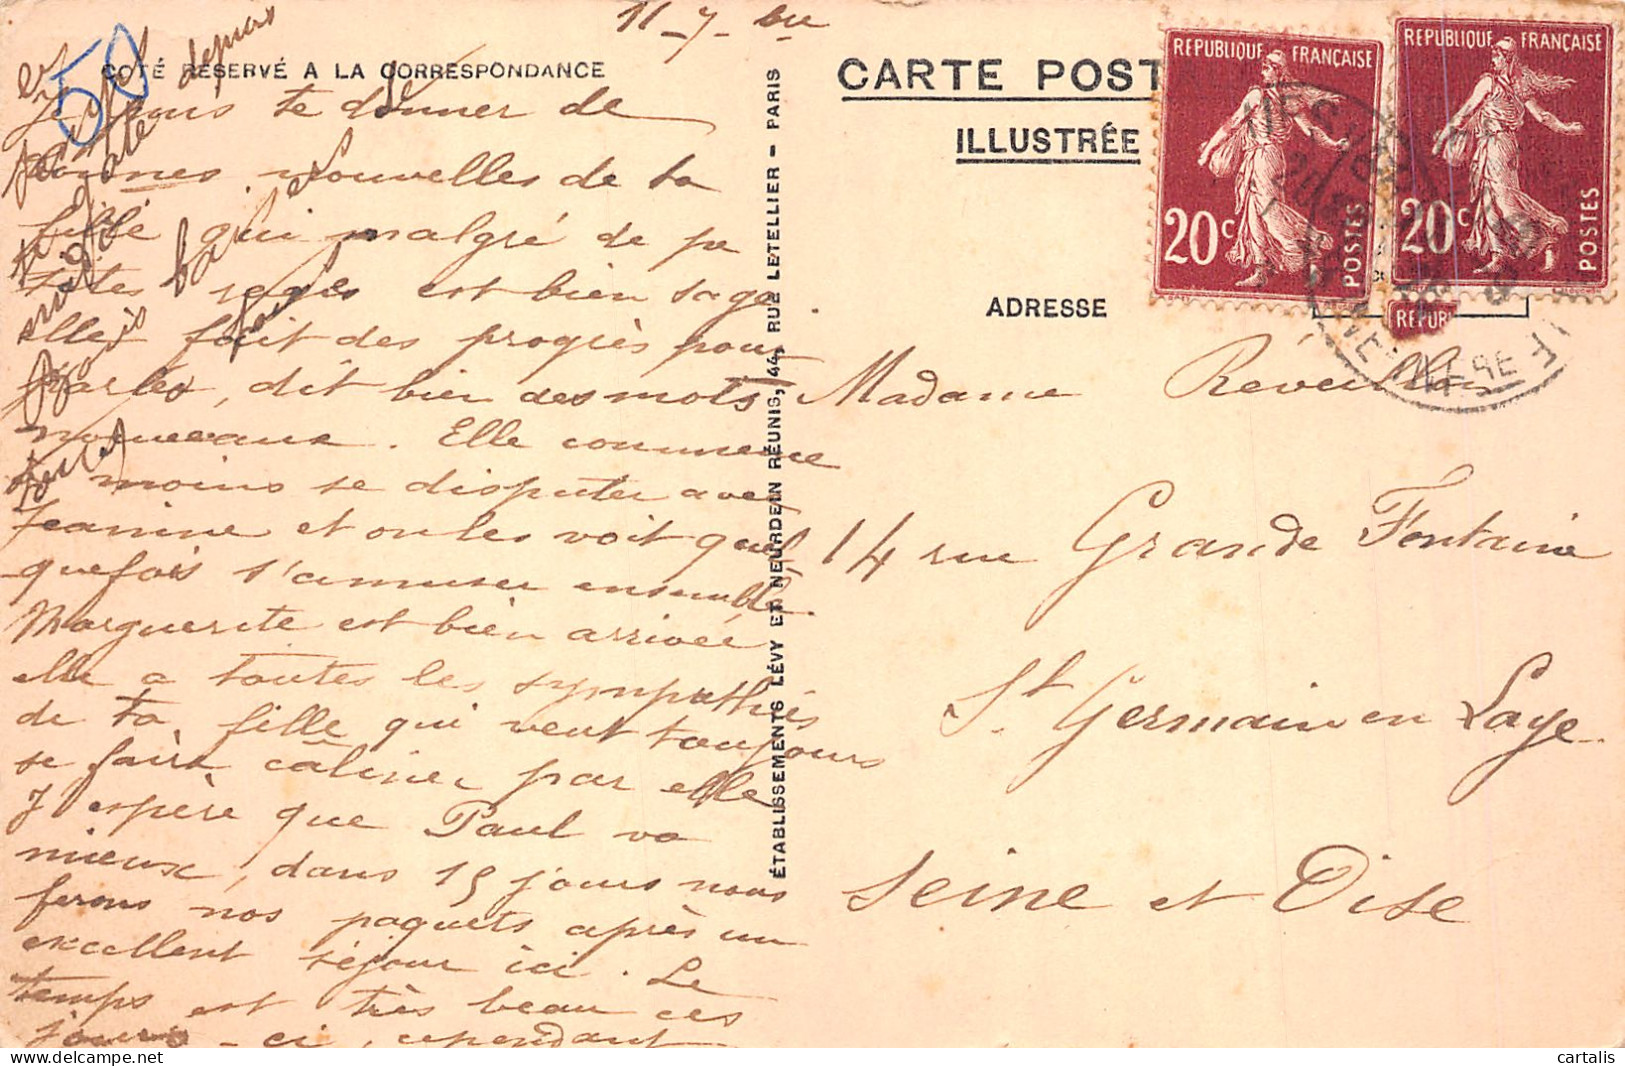 11-7-bre
50
COTÉ RÉSERVÉ A LA CORRESPONDANCE
Je vais te donner de
bonnes nouvelles de ta
fille qui malgré de pe
tites rages est bien sage
elle fait des progrès pour
parler, dit bien des mots
nouveaux. Elle commence
à moins se disputer avec
Jeanine et on les voit quel
quefois s'amuser ensemble.
Marguerite est bien arrivée
elle a toutes les sympathies
de ta fille qui veut toujours
se faire câliner par elle
J'espère que Paul va
mieux, dans 15 jours nous
ferons nos paquets après un
excellent séjour ici. Le
temps est très beau ces
jours-ci, cependant
depuis
baisers
ÉTABLISSEMENTS LÉVY ET NEURDEIN RÉUNIS, 44, RUE LETELLIER - PARIS
CARTE POST
ILLUSTRÉE
ADRESSE
REPUBLIQUE FRANÇAISE
20c
POSTES
REPUBLIQUE FRANÇAISE
20c
POSTES
REPUBL
Madame Réveillon
14 rue Grande Fontaine
St Germain en Laye
Seine et Oise
cartalis